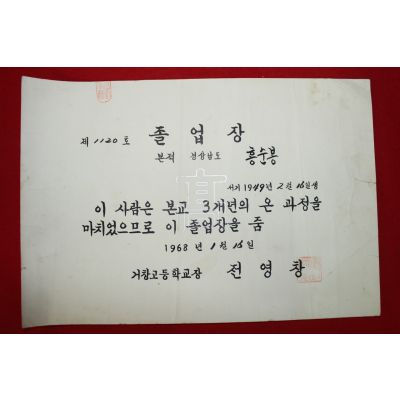 제 1120 호 졸업장
본적 경상남도 홍순봉
서기 1949년 2월 16일생
이 사람은 본교 3개년의 온 과정을
마치었으므로 이 졸업장을 줌
1968 년 1월 16일
거창고등학교장 전영창